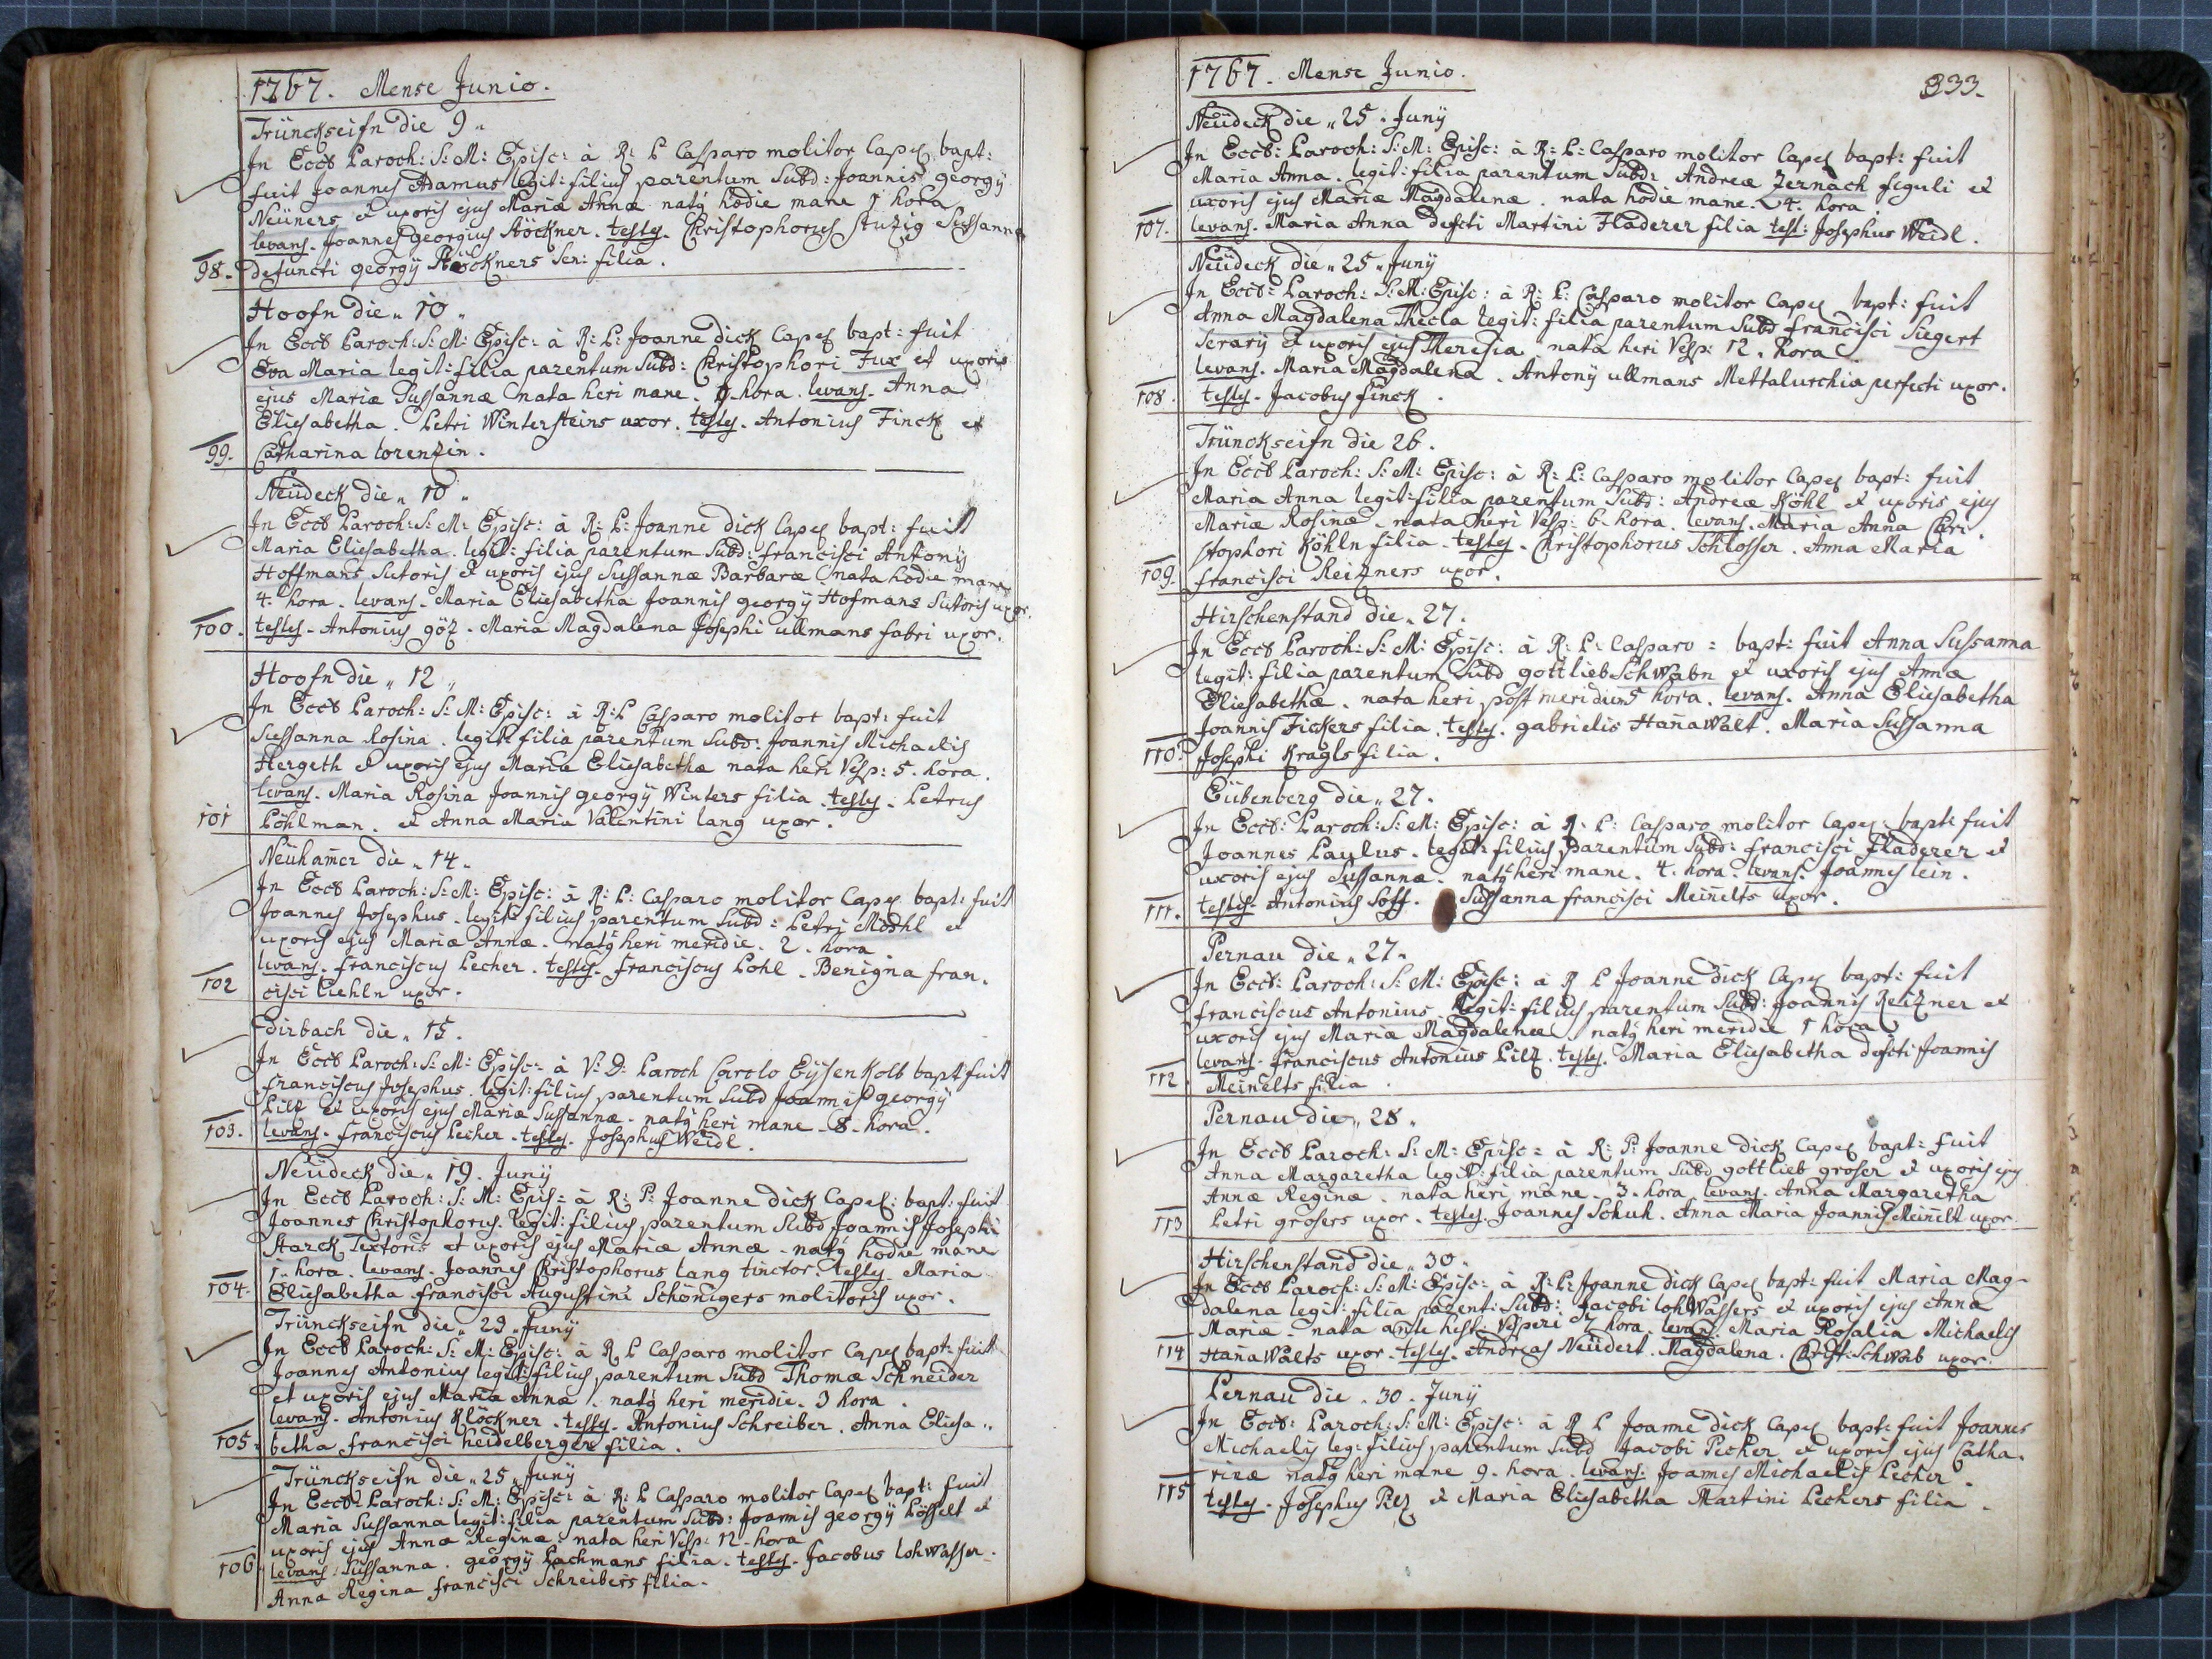 1767. Mense Junio.
Trünckseifn die 9.
In Eccl Paroch: S: M: Episc: à R: P Casparo molitor Capel bapt:
fuit Joannes Adamus legit: filius parentum Subd: Joannis georgÿ
Neüners et uxoris ejus Mariæ Annæ natq hodie mane 1 hora
levans. Joannes georgius Stöckner. testes. Christophorus Stuzig Sussanna
98. defuncti georgÿ Klöckners Sen: filia.
Hoofn die „ 10 „
In Eccl Paroch: S: M: Episc: à R: P: Joanne dick Capel bapt: fuit
Eva Maria legit: filia parentum Subd: Christophori Fux et uxoris
ejus Mariæ Sussannæ nata heri mane. hora. levans. Anna
Eliesabetha. Petri Wintersteins uxor. testes. Antonius Finck et
99. Catharina lorenzin.
Neüdeck die „ 10 „
In Eccl Paroch: S: M: Episc: à R: P: Joanne dick Capel bapt: fuit
Maria Eliesabetha. legit: filia parentum Subd: francisci Antonÿ
Hoffmans Sutoris et uxoris ejus Sussannæ Barbaræ nata hodie mane
4. hora. levans. Maria Eliesabetha Joannis georgÿ Hofmans Sutoris uxor.
100. testes. Antonius göz. Maria Magdalena Josephi ullmans fabri uxor.
Hoofn die „ 12 „
In Eccl Paroch: S: M: Episc: à R: P Casparo molitor bapt: fuit
Sussanna Rosina. legit: filia parentum Subd: Joannis Michaelis
Hergeth et uxoris ejus Mariæ Eliesabethæ nata heri Vesp: 5. hora.
levans. Maria Rosina Joannis georgÿ Winters filia. testes. Petrus
101 Pöhlman. et Anna Maria Valentini lang uxor.
Neüham̄er die „ 14 „
In Eccl Paroch: S: M: Episc: à R: P: Casparo molitor Capel bapt: fuit
Joannes Josephus. legit: filius parentum Subd: Petri Möschl et
uxoris ejus Mariæ Annæ. natq heri meridie. 2. hora.
levans. franciscus Pecher. testes. franciscus Pohl. Benigna fran.
102 cisci uxor.
dirbach die „ 15.
In Eccl Paroch: S: M: Episc: à V: D: Paroch Carolo Eÿsenkolb bapt fuit
franciscus Josephus. legit: filius parentum Subd Joannis georgÿ
Pilz et uxoris ejus Mariæ Sussannæ. natq heri mane 8. hora.
103. levans. franciscus Pecher. testes. Josephus Weidl.
Neüdeck die „ 19. Junÿ
In Eccl Paroch: S: M: Epis: à R: P: Joanne dick Capel: bapt: fuit
Joannes Christophorus. legit: filius parentum Subd Joannis Josephi
Starck Textoris et uxoris ejus Mariæ Annæ. natq hodie mane
1. hora. levans. Joannes Christophorus lang tinctor. testes. Maria
104. Eliesabetha francisci Augustini Schönigers molitoris uxor.
Trünckseifn die „ 23 „ Junÿ
In Eccl Paroch: S: M: Episc: à R P Casparo molitor Capel bapt: fuit
Joannes Antonius legit: filius parentum Subd Thomæ Schneider
et uxoris ejus Maria Annæ. natq heri meridie. 3 hora.
levans. Antonius Klöckner. testes. Antonius Schreiber. Anna Eliesa„
105. betha francisci heidelbergers filia.
Trünckseifn die „ 25 „ Junÿ
In Eccl Paroch: S: M: Episc: à R: P Casparo molitor Capel bapt: fuit
Maria Sussanna legit: filia parentum Subd: Joannis georgÿ Pösselt et
uxoris ejus Annæ Reginæ nata heri Vesp: 12. hora
106. levans: Sussanna. georgÿ Pachmans filia. testes. Jacobus lohwasser.
Anna Regina francisci Schreibers filia.
1767. Mense Junio.
333.
Neüdeck die „ 25. Junÿ
In Eccl: Paroch: S: M: Episc: à R: P: Casparo molitor Capel bapt: fuit
Maria Anna. legit: filia parentum Subd: Andreæ Zernach figuli et
uxoris ejus Mariæ Magdalenæ. nata hodie mane. 4. hora.
107. levans. Maria Anna defcti Martini Fladerer filia test: Josephus Weidl.
Neüdeck die „ 25 „ Junÿ
In Eccl: Paroch: S: M: Episc: à R: P: Casparo molitor Capel bapt: fuit
Anna Magdalena Thecla legit: filia parentum Subd fran̄cisci Siegert
Serarÿ et uxoris ejus Theresia nata heri Vesp: 12. hora.
levans. Maria Magdalena. Antonÿ ullmans Mettalurchia perfecti uxor.
108. testes. Jacobus finck.
Trünckseifn die 26.
In Eccl Paroch: S: M: Episc: à R: P: Casparo molitor Capel bapt: fuit
Maria Anna legit: filia parentum Subd: Andreæ Köhl et uxoris ejus
Mariæ Rosinæ. nata heri Vesp: 6. hora. levans. Maria Anna Chri.
stophori Köhln filia. testes. Christophorus Schlosser. Anna Maria
109. francisci Reizners uxor.
Hirschenstand die „ 27.
In Eccl Paroch: S: M: Episc: à R: P: Casparo = bapt: fuit Anna Sussanna
legit: filia parentum Subd gottlieb Schwabn et uxoris ejus Annæ
Eliesabethæ. nata heri post meridiem 5 hora. levans. Anna Eliesabetha
Joannis Fickers filia. testes. gabrielis Han̄awalt. Maria Sussanna
110. Josephi Kragls filia.
Eübenberg die „ 27.
In Eccl: Paroch: S: M: Episc: à R: P: Casparo molitor Capel bapt: fuit
Joannes Paulus. legit: filius parentum Subd: francisci fladerer et
uxoris ejus Sussannæ. natq heri mane. 4. hora. levans. Joannes lein.
111. testes. Antonius Soff. Sussanna francisci Mein̄elts uxor.
Pernau die „ 27.
In Eccl: Paroch: S: M: Episc: à R P Joanne dick Capel bapt: fuit
franciscus Antonius legit: filius parentum Subd: Joannis Reizner et
uxoris ejus Mariæ Magdalenæ natq heri meridie 1 hora
levans. franciscus Antonius Pilz. testes. Maria Eliesabetha defcti Joannis
112. Meinelts filia.
Pernau die „ 28 „
In Eccl Paroch: S: M: Episc: à R: P: Joanne dick Capel bapt: fuit
Anna Margaretha legit: filia parentum Subd gottlieb groser et uxoris ejus
Annæ Reginæ. nata heri mane. 3. hora levans. Anna Margaretha
113 Petri grosers uxor. testes. Joannes Schuh. Anna Maria Joannis Mein̄elt uxor.
Hirschenstand die „ 30 „
In Eccl Paroch: S: M: Episc: à R: P: Joanne dick Capel bapt: fuit Maria Mag-
dalena legit: filia parent: Subd: Jacobi lohWassers et uxoris ejus Annæ
Mariæ. nata ante hest: Vesperi 7 hora levans. Maria Rosalia Michaelis
114 Han̄aWalts uxor. testes. Andreas Neüdert. Magdalena. Christ: Schwab uxor.
Pernau die. 30. Junÿ
In Eccl: Paroch: S: M: Episc: à R P Joanne dick Capel bapt: fuit Joannes
Michaelis leg: filius parentum Subd Jacobi Pecher et uxoris ejus Catha.
rinæ natq heri mane 9. hora. levans. Joannes Michaelis Pecher.
115 testes. Josephus Pilz et Maria Eliesabetha Martini Pechers filia.